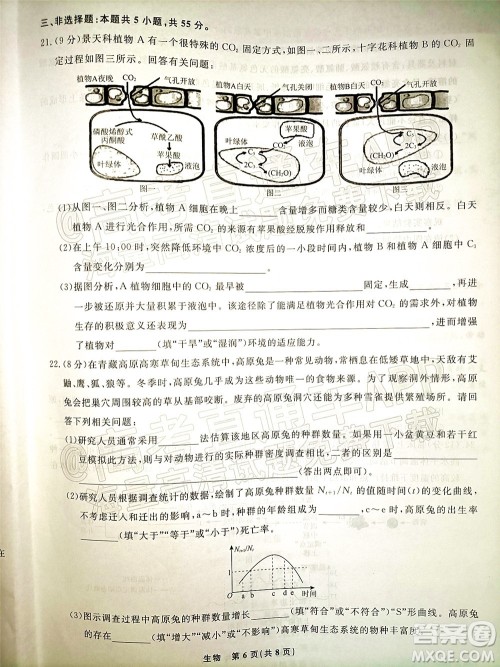 三、非选择题:本题共5小题,共55分。
21.(9分)景天科植物A有一个很特殊的CO₂固定方式,如图一、二所示,十字花科植物B的CO₂固
定过程如图三所示。回答有关问题:
植物A夜晚 CO₂ 气孔开放 植物A白天 气孔关闭 植物B白天 CO₂ 气孔开放
磷酸烯醇式
丙酮酸
草酰乙酸
苹果酸
叶绿体 液泡
图一
苹果酸
CO₂
叶绿体
C₅
2C₃
(CH₂O)
液泡
图二
C₅
2C₃
(CH₂O)
叶绿体
液泡
图三
(1)从图一、图二分析,植物A细胞在晚上
增多而糖类含量较少,但白天则相反。白天
植物A进行光合作用,其中所需的CO₂的来源除了苹果酸经脱羧作用释放外,还有
(2)在上午10:00时,突然降低环境中CO₂浓度后的一小段时间内,植物A和植物B细胞中C₃
含量变化分别为 、 。
(3)据图分析,A植物细胞中的CO₂最早被 固定成 ,再进
一步被还原并大量积累于液泡。该途径除维持植物光合作用对CO₂的需求外,对植物
生存的积极意义还在于
了植物对 (填“干旱”或“湿润”)环境的适应能力。
22.(8分)在青藏高原高寒草甸生态系统中,高原兔是一种常见动物,常栖息在低矮草地中,天敌有艾
鼬、鹰、狐、狼等。冬季时,高原兔几乎成为这些天敌的唯一食物来源。高原兔会挖掘洞穴,会
把巢穴周围等较高的草从基部咬断。废弃的高原兔洞穴能为多种地栖鸟类提供繁殖场所。请回
答下列相关问题:
(1)研究人员通常采用 法估算该地区高原兔的种群数量。如果用一小盆黄豆和若干红
豆模拟完成该调查过程,二者不同之处是
(答出两点即可)。
(2)研究人员根据调查统计,绘制了高原兔种群数量Nₜ₊₁/Nₜ的值随时间(t)的变化曲线。
若不考虑迁入和迁出的影响,a时,种群的年龄组成为 ,c时,出生率
(填“大于”“等于”或“小于”)死亡率。
Nₜ₊₁/Nₜ
1
0 a b c d e 时间
(3)图示调查过程中高原兔的种群数量增长 (填“符合”或“不符合”)“S”形曲线。
(填“增大”“减小”或“不影响”)高寒草甸生态系统的物种丰富度,原因是
生物 第6页(共8页)